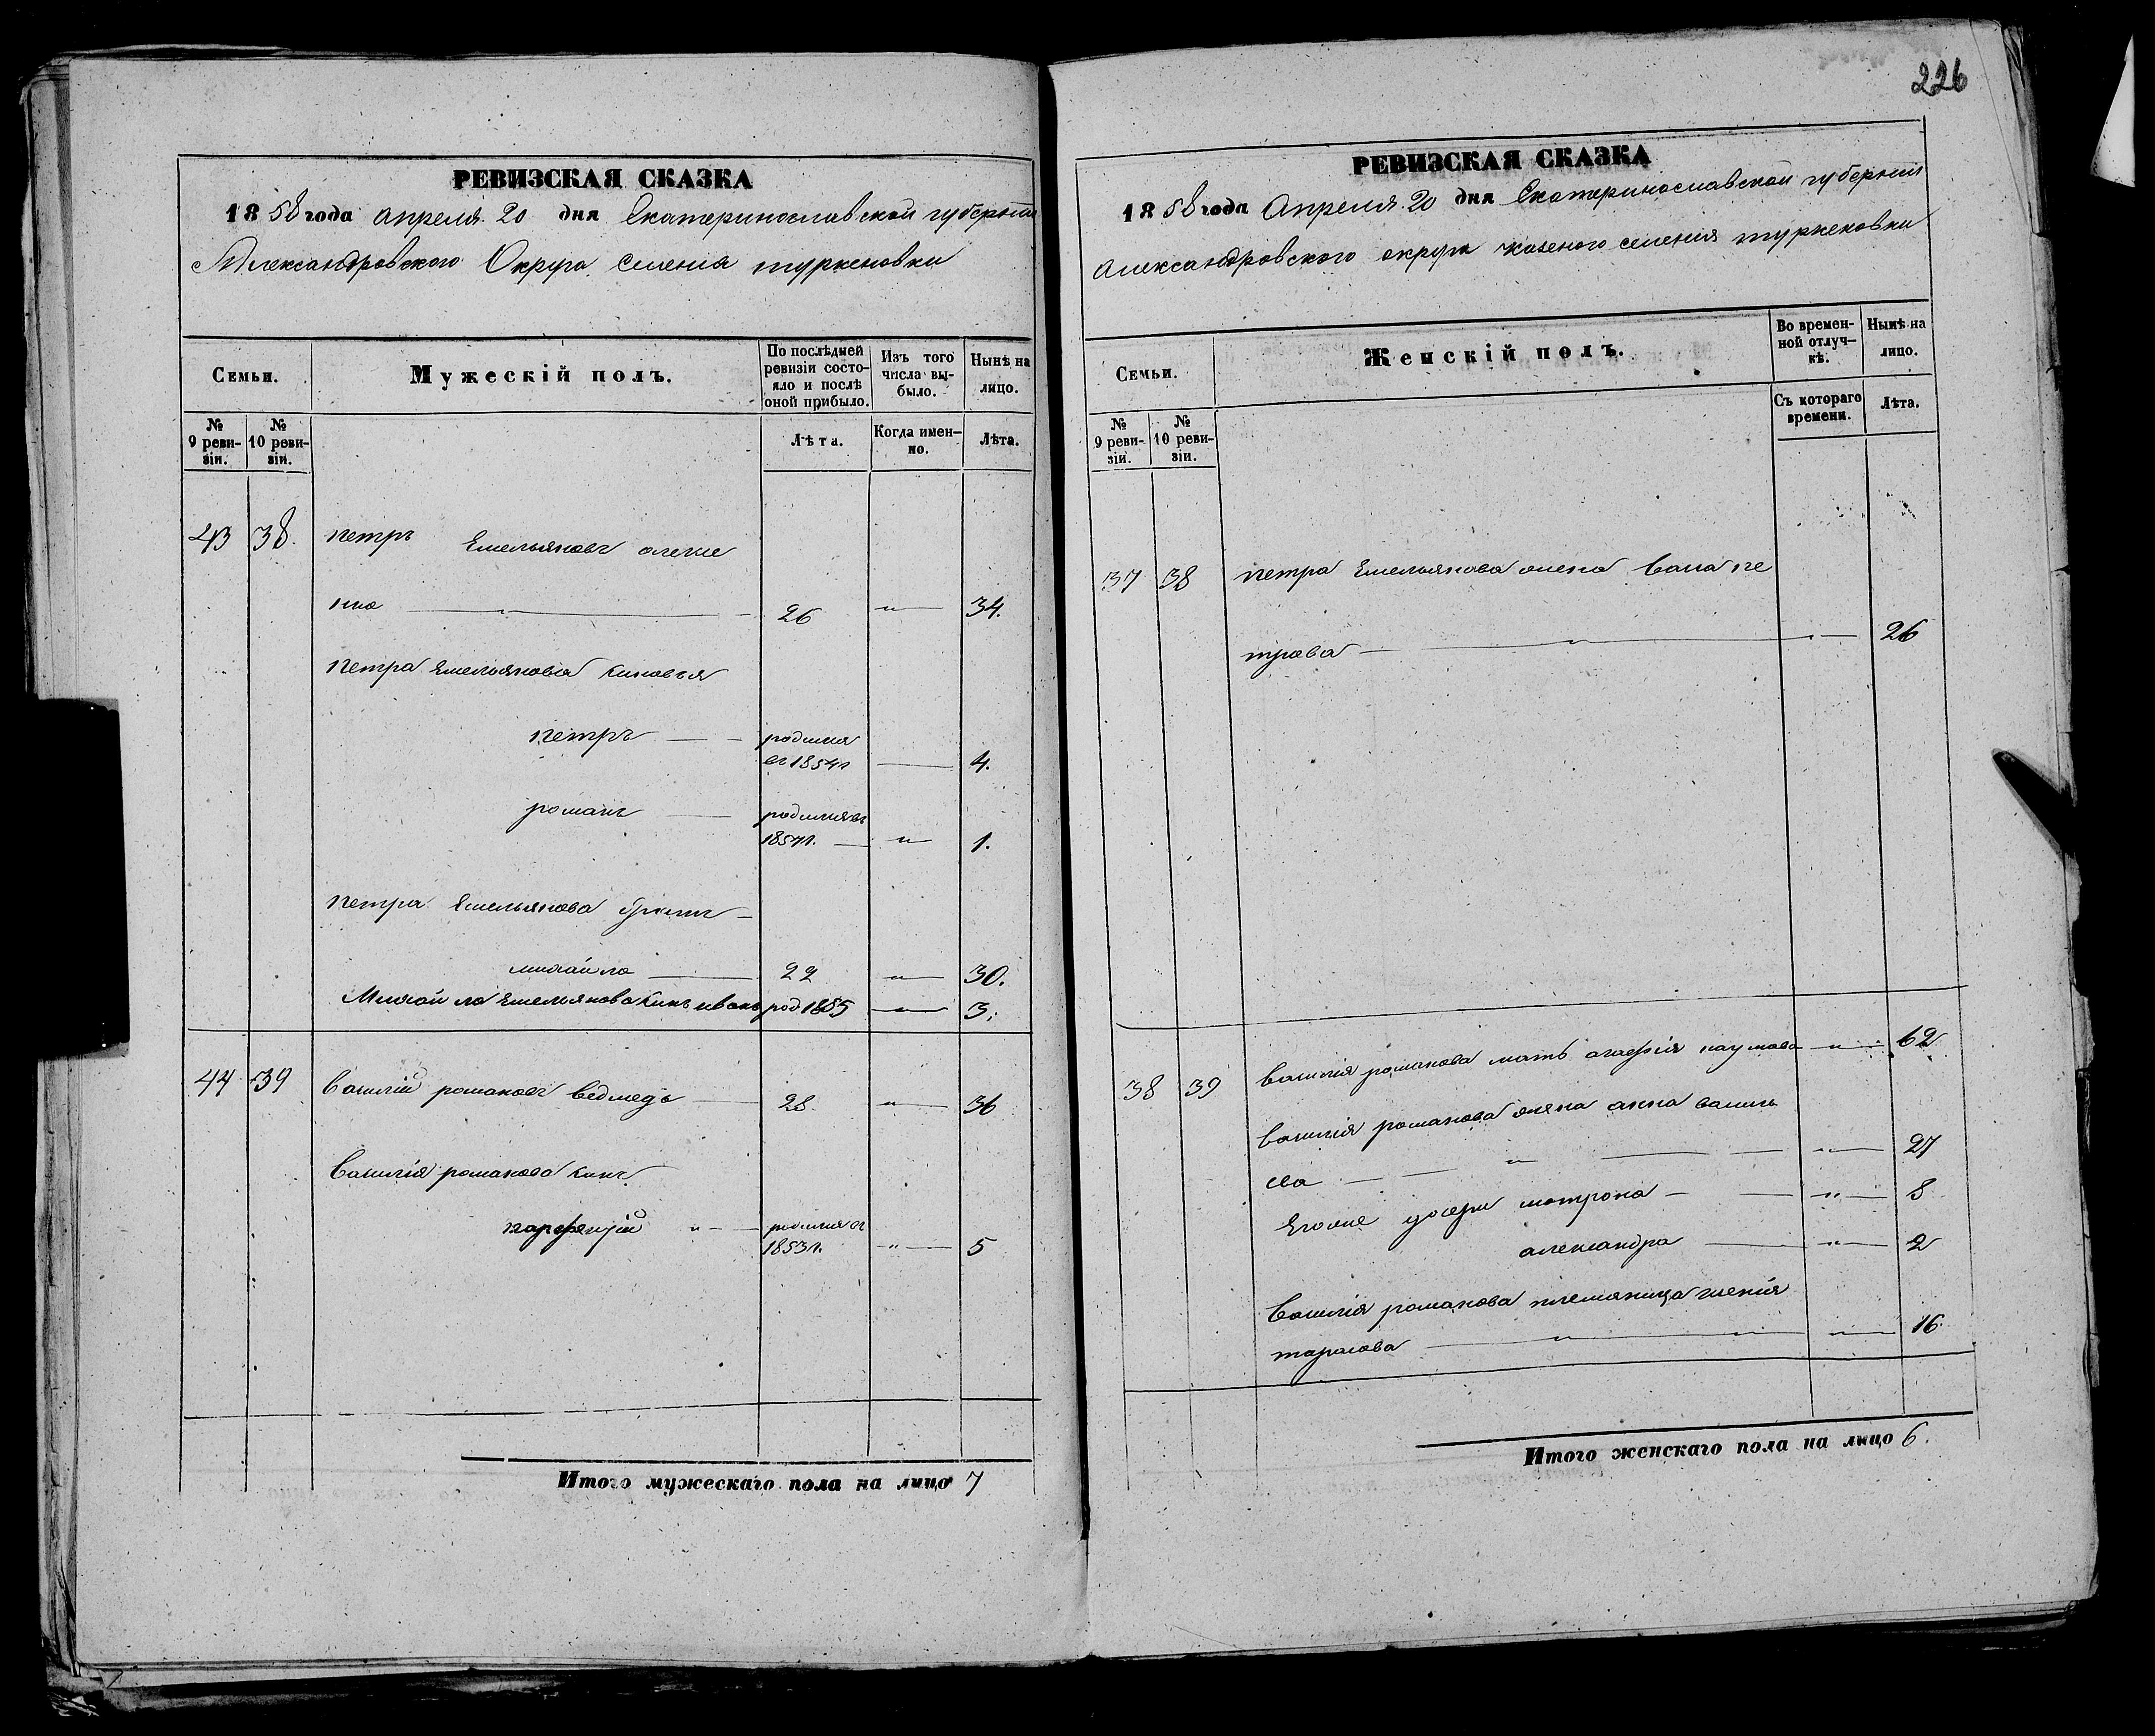 РЕВИЗСКАЯ СКАЗКА
1858 года апреля 20 дня Екатеринославской губернии
Александровского Округа селения туркеновки
Семьи.
Мужескій полъ.
По послѣдней ревизіи состояло и послѣ оной прибыло.
Изъ того числа выбыло.
Нынѣ на лицо.
№ 9 ревизіи.
№ 10 ревизіи.
Лѣта.
Когда именно.
Лѣта.
43 38. петръ Емельяновъ
26 — " — 34.
петра Емельянова
петръ — родился
въ 1854 г. — 4.
романъ — родился въ
1857 г. — " — 1.
петра Емельянова братъ
михайло — 22 — " — 30.
Михайло Емельянова иванъ род 1855 — " — 3.
44 39 василій романовъ ведмедь — 28. — " — 36
василія романова
парфентій " — родился въ
1853 г. — " — 5
Итого мужескаго пола на лицо 7
226
РЕВИЗСКАЯ СКАЗКА
1858 года Апреля 20 дня Екатеринославской губернии
александровского округа казеного селения туркеновки
Семьи.
Женскій полъ.
Во временной отлучкѣ.
Нынѣ на лицо.
№ 9 ревизіи.
№ 10 ревизіи.
Съ котораго времени.
Лѣта.
37 38 петра Емельянова пе
трова — " — " — 26
38 39 василия романова мать агафия наумова — " — 62
василия романова анна василь
ева — " — " — 27
Еговие дочери мотрона — " — 8
александра — " — 2
василия романова племяница
тарасова — " — " — 16.
Итого женскаго пола на лицо 6.